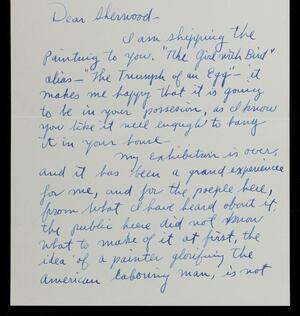 Dear Sherwood-
I am shipping the
Painting to you. "The Girl with Bird"
alias- "The Triumph of an Egg"- it
makes me happy that it is going
to be in your possesion, as I know
you like it well enough to hang
it in your house-
My Exhibition is over,
and it has been a grand experience
for me, and for the poeple here,
from what I have heard about it.
the public here did not know
what to make of it at first, the
idea of a painter glorifying the
American laboring man, is not